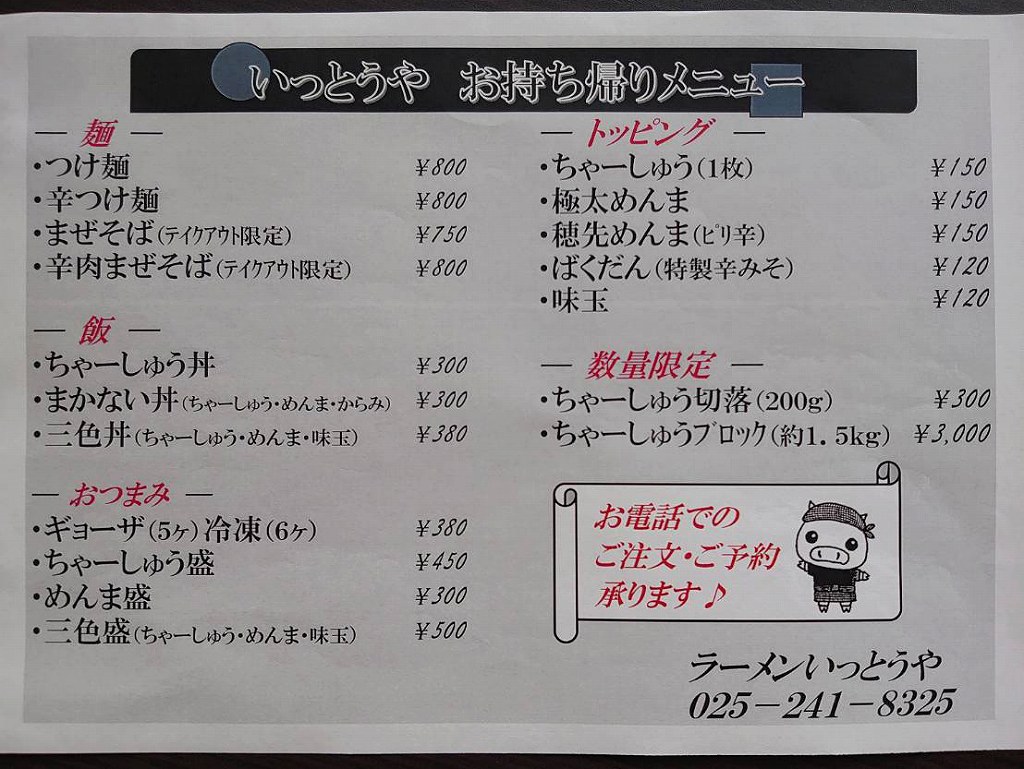 いっとうや お持ち帰りメニュー
― 麺 ―
・つけ麺 ¥800
・辛つけ麺 ¥800
・まぜそば(ﾃｲｸｱｳﾄ限定) ¥750
・辛肉まぜそば(ﾃｲｸｱｳﾄ限定) ¥800
― 飯 ―
・ちゃーしゅう丼 ¥300
・まかない丼(ちゃーしゅう・めんま・からみ) ¥300
・三色丼(ちゃーしゅう・めんま・味玉) ¥380
― おつまみ ―
・ギョーザ(5ヶ)冷凍(6ヶ) ¥380
・ちゃーしゅう盛 ¥450
・めんま盛 ¥300
・三色盛(ちゃーしゅう・めんま・味玉) ¥500
― トッピング ―
・ちゃーしゅう(1枚) ¥150
・極太めんま ¥150
・穂先めんま(ﾋﾟﾘ辛) ¥150
・ばくだん(特製辛みそ) ¥120
・味玉 ¥120
― 数量限定 ―
・ちゃーしゅう切落(200g) ¥300
・ちゃーしゅうﾌﾞﾛｯｸ(約1.5kg) ¥3,000
お電話での
ご注文・ご予約
承ります♪
ラーメンいっとうや
025－241－8325